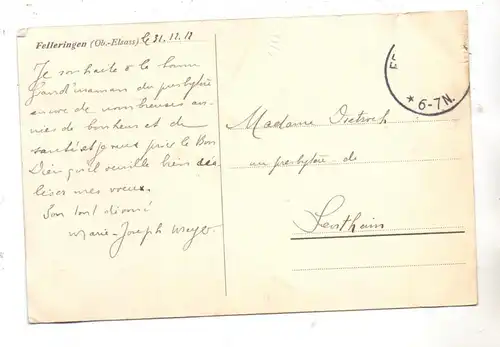 Felleringen (Ob.-Elsass) le 31.12.12
Je souhaite à la bonne
Grand'maman du presbytère
encore de nombreuses an-
nées de bonheur et de
santé et je veux prier le Bon
Dieu qu'il veuille bien réa-
liser mes voeux.
Son tout dévoué
Marie-Joseph
* 6-7N.
Madame Dietrich
au presbytère de